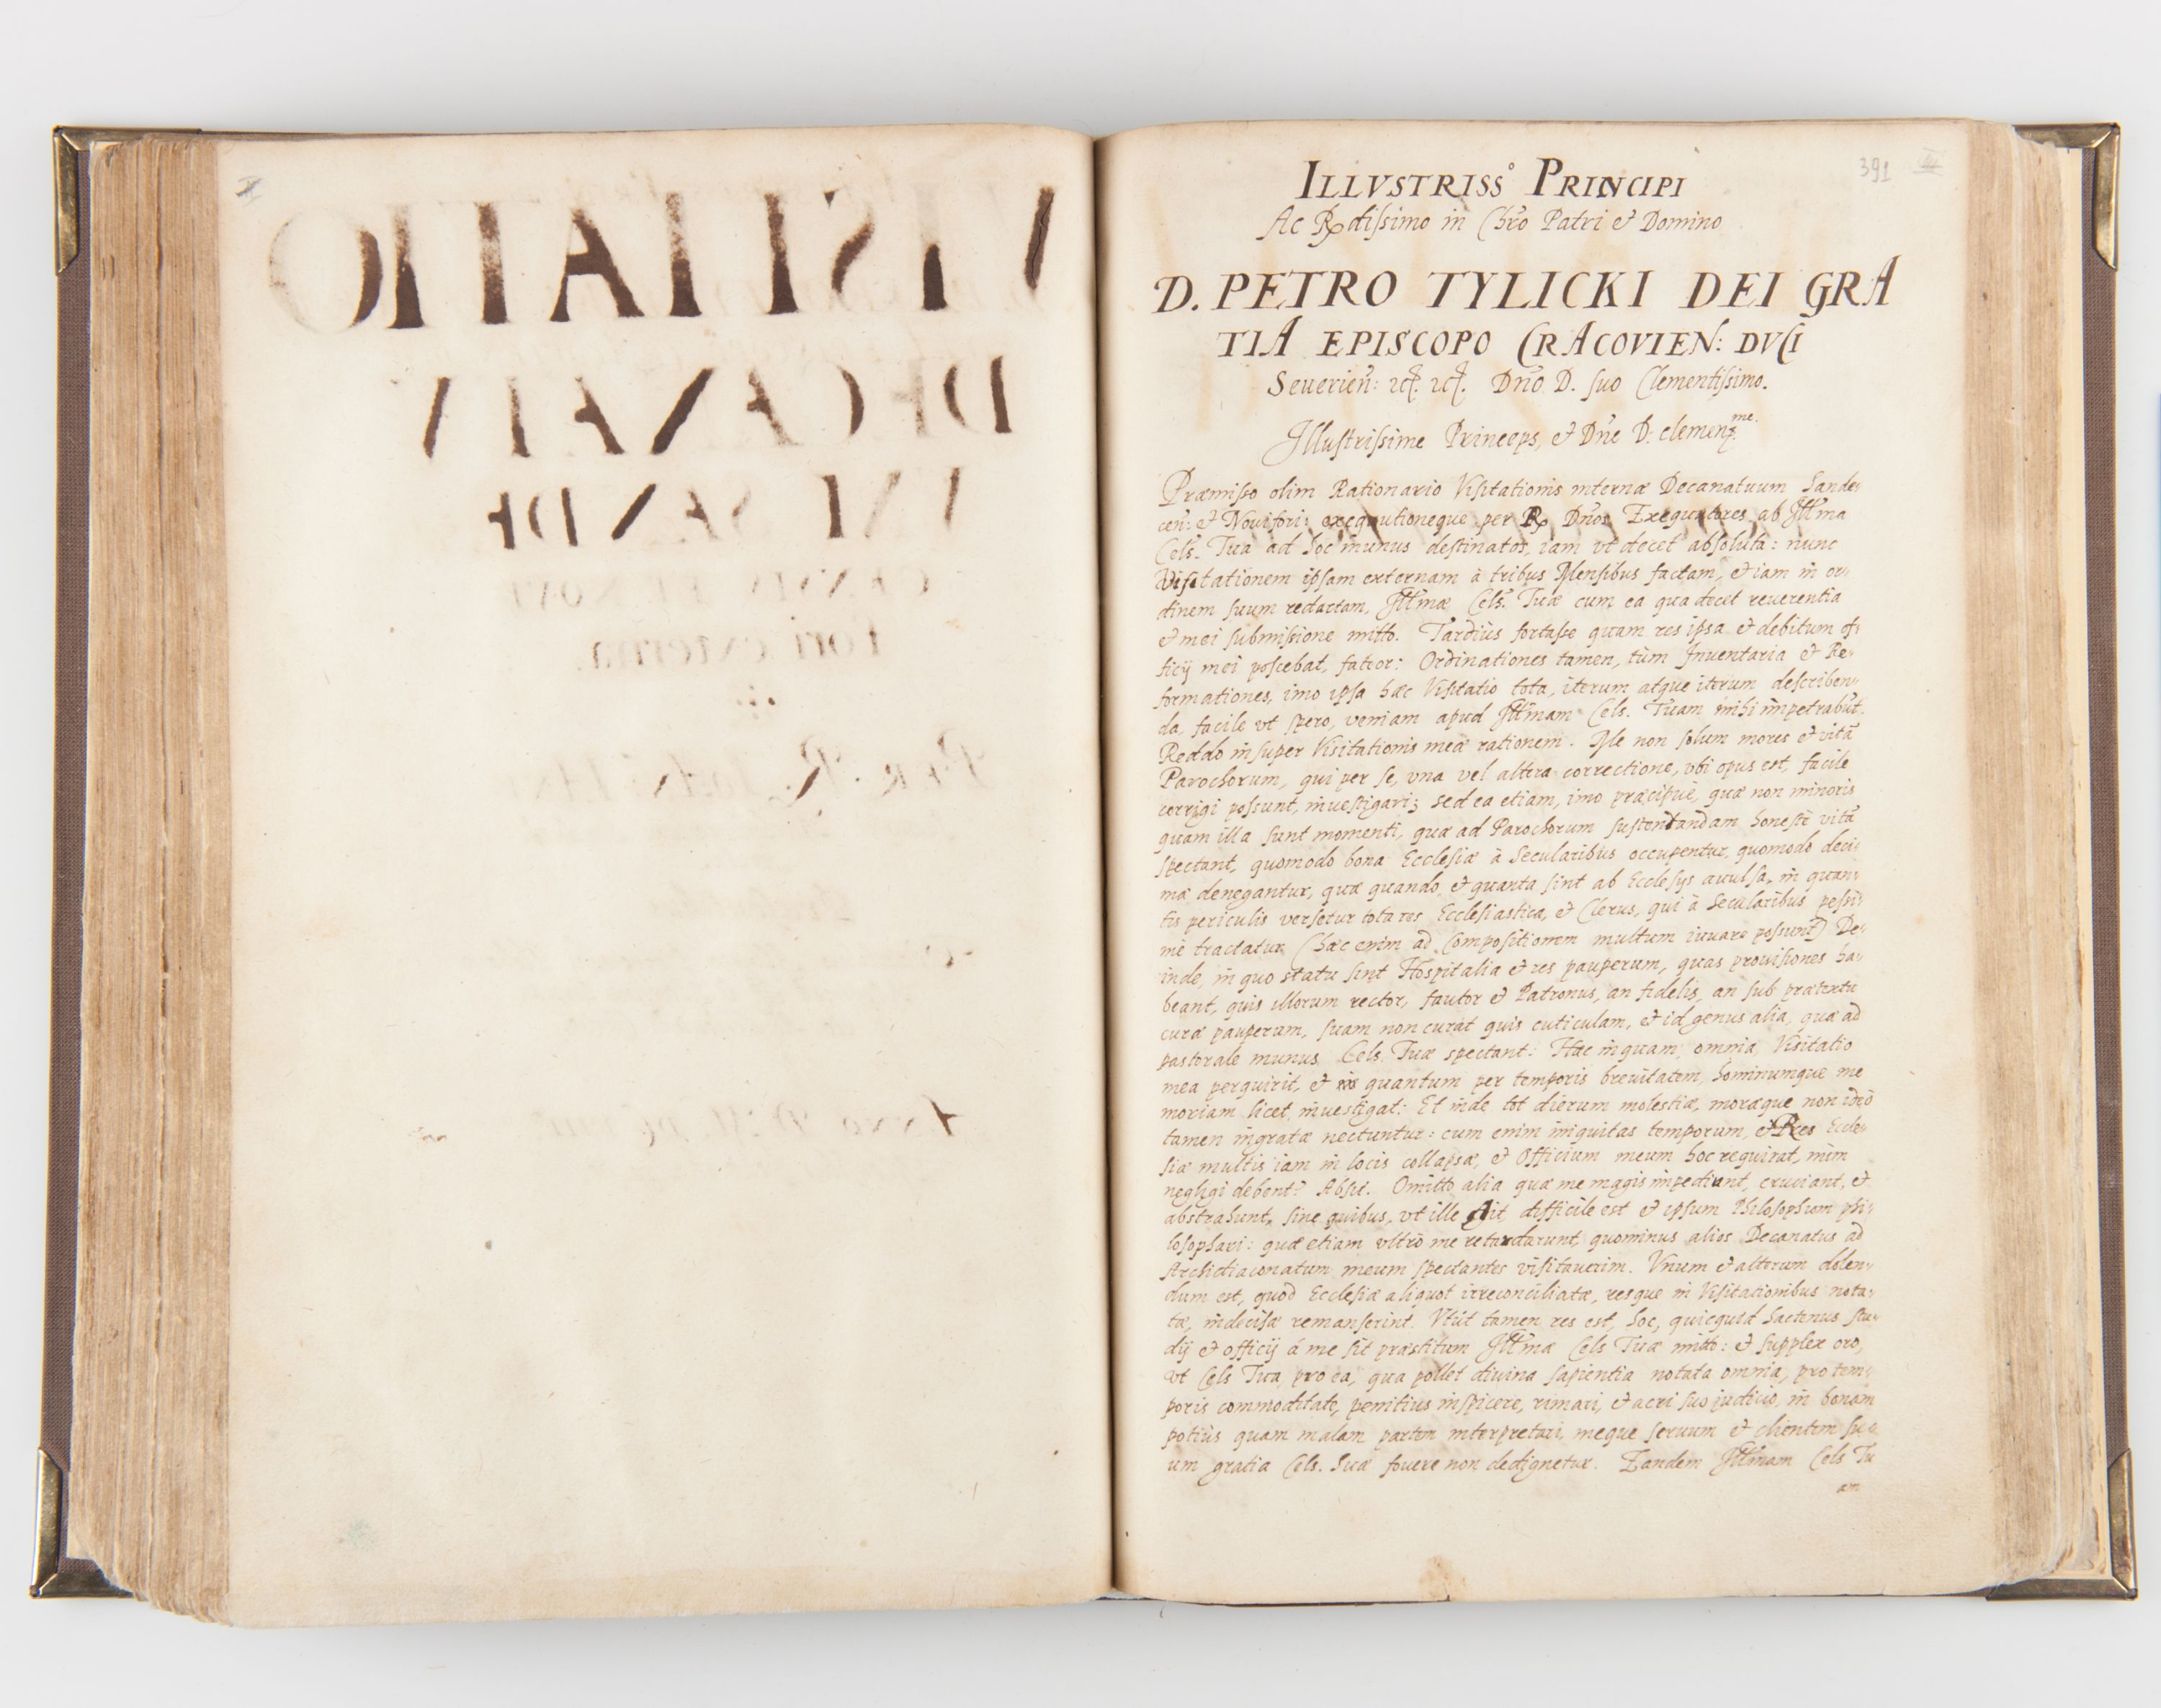 VISITATIO
DECANATV
VM SANDE
CENSIS ET NOVI
fori externa.
391
ILLVSTRISSº PRINCIPI
Ac Rdissimo in Chro Patri & Domino
D. PETRO TYLICKI DEI GRA
TIA EPISCOPO CRACOVIEN: DVCI
Seuerien: etc. etc. Dno D. suo Clementissimo.
Illustrissime Princeps, & Dne D. clemen^me.
Præmisso olim Rationario Visitationis internæ Decanatuum Sande
cen: & Nouifori: exequutioneque per R Dnos Exequutores ab Illma
Cels. Tua ad hoc munus destinatos, iam vt decet absoluta: nunc
Visitationem ipsam externam à tribus Mensibus factam, & iam in or
dinem suum redactam, Illmæ Cels. Tuæ cum ea qua decet reuerentia
& mei submissione mitto. Tardius fortasse quam res ipsa & debitum of
ficij mei poscebat, fateor: Ordinationes tamen, tùm Inuentaria & Re
formationes, imo ipsa hæc Visitatio tota, iterum atque iterum describen
da, facile vt spero, veniam apud Illmam Cels. Tuam mihi impetrabūt.
Reddo insuper Visitationis meæ rationem. Me non solum mores & vitā
Parochorum, qui per se, vna vel altera correctione, vbi opus est, facile
corrigi possunt, inuestigari; sed ea etiam, imo præcipuè, quæ non minoris
quam illa sunt momenti, quæ ad Parochorum sustentandam honestè vitā
spectant, quomodo bona Ecclesiæ à Secularibus occupentur, quomodo deci
mæ denegantur, quæ quando & quanta sint ab Ecclesijs auulsa, in quan
tis periculis versetur tota res Ecclesiastica, & Clerus, qui à Secularibus pessi
mè tractatur (hæc enim ad Compositionem multum iuuare possunt) De
inde, in quo statu sint Hospitalia & res pauperum, quas prouisiones ha
beant, quis illorum rector, fautor & Patronus, an fidelis, an sub prætextu
curæ pauperum, suam non curat quis cuticulam, & id genus alia, quæ ad
pastorale munus Cels. Tuæ spectant: Hæc inquam, omnia, Visitatio
mea perquirit, & quantum per temporis breuitatem, hominumque me
moriam licet, inuestigat: Et inde tot dierum molestiæ, moræque non ideò
tamen ingratæ nectuntur: cum enim iniquitas temporum, & Res Eccle
siæ multis iam in locis collapsæ, & Officium meum hoc requirat, num
negligi debent? Absit. Omitto alia quæ me magis impediunt, cruciant, &
abstrahunt, sine quibus, vt ille Ait, difficile est & ipsum Philosophum phi
losophari: quæ etiam vltrò me retardarunt, quominus alios Decanatus ad
Archidiaconatum meum spectantes visitauerim. Vnum & alterum dolen
dum est, quod Ecclesiæ aliquot irreconciliatæ, resque in Visitationibus nota
tæ, indecisæ remanserint. Vtut tamen res est, hoc, quicquid hactenus stu
dij & officij à me sit præstitum Illmæ Cels Tuæ mitto: & supplex oro,
vt Cels Tua, pro ea, qua pollet diuina sapientia notata omnia, pro tem
poris commoditate, penitius inspicere, rimari, & acri suo judicio, in bonam
potiùs quam malam partem interpretari, meque seruum & clientem su
um gratia Cels. Suæ fouere non dedignetur. Tandem Illmam Cels Tu
am